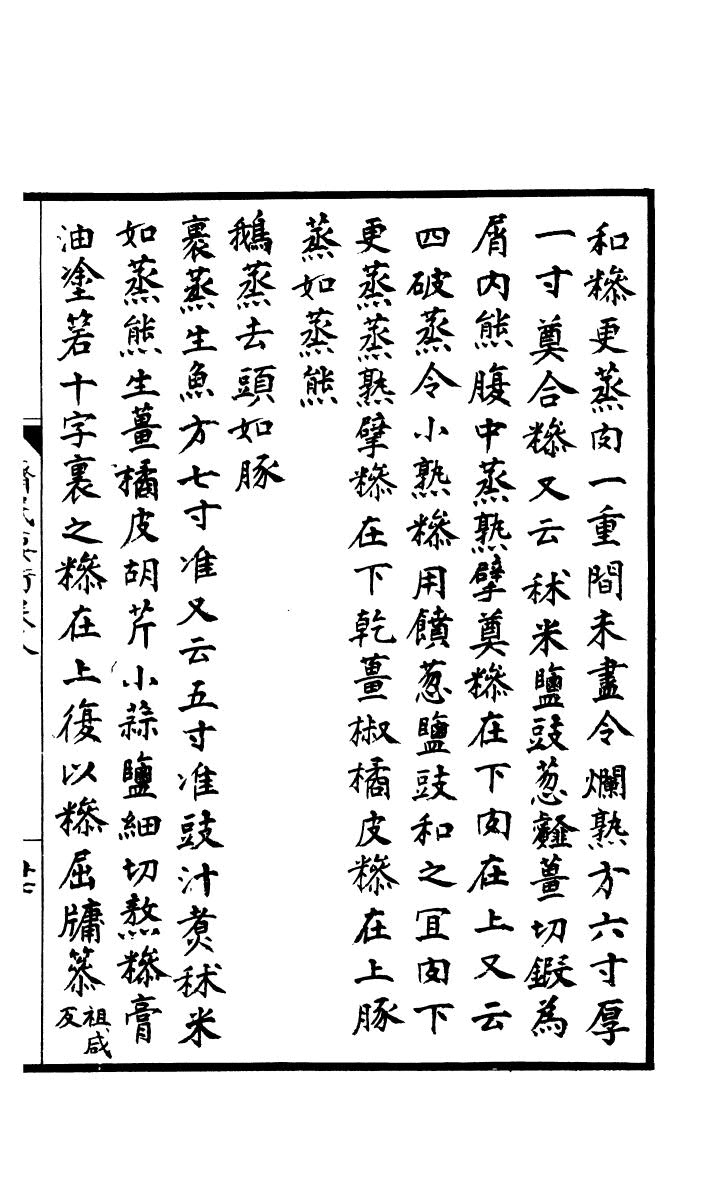 和糝更蒸肉一重間未盡令爛熟方六寸厚
一寸奠合糝又云秫米鹽豉葱薤薑切鍛為
屑內熊腹中蒸熟擘奠糝在下肉在上又云
四破蒸令小熟糝用饙葱鹽豉和之宜肉下
更蒸蒸熟擘糝在下乾薑椒橘皮糝在上豚
蒸如蒸熊
鵝蒸去頭如豚
裹蒸生魚方七寸准又云五寸准豉汁煑秫米
如蒸熊生薑橘皮胡芹小蒜鹽細切熬糝膏
油塗箬十字裹之糝在上復以糝屈牖篸祖咸反
齊民要術卷八
廿七